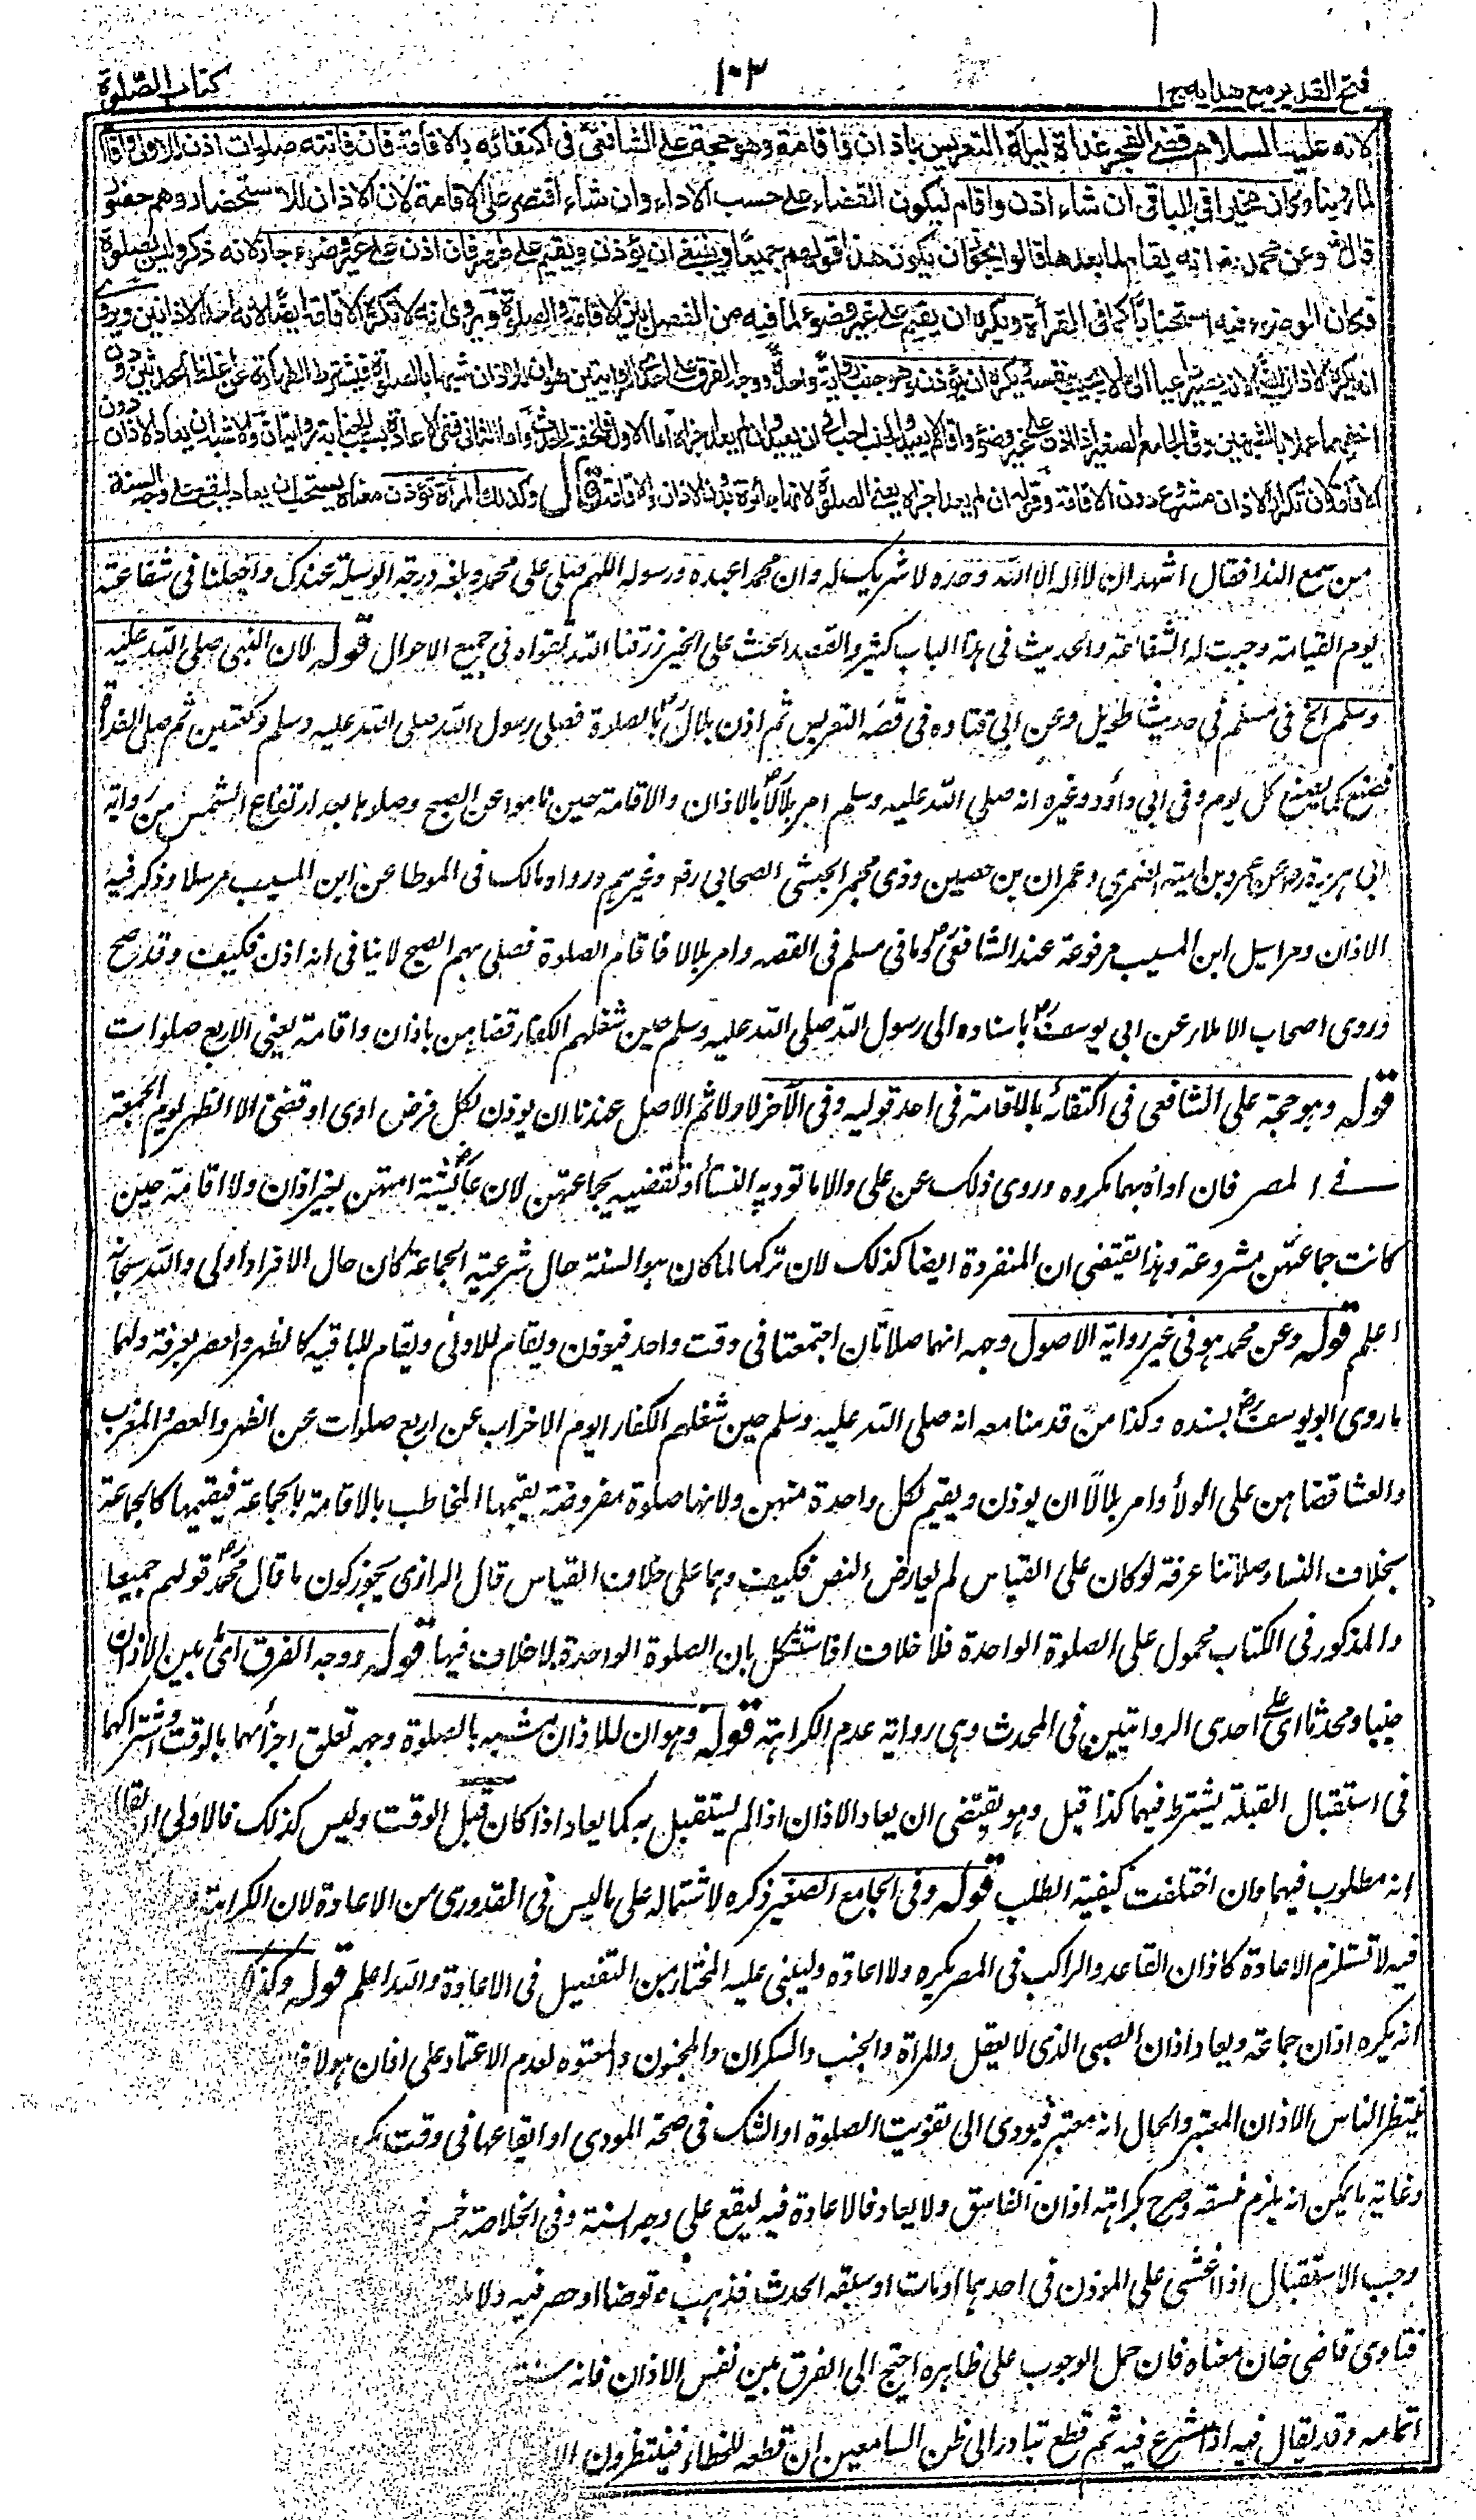 فتح القدير مع هدايه ج ١
١٠٢
كتاب الصلوة
لانه عليه السلام قضى الفجر غداة ليلة التعريس باذان واقامة وهو حجة على الشافعي في اكتفائه بالاقامة فان فاتته صلوات اذن للاولى واقام
لما روينا وكان مخيرا في الباقي ان شاء اذن واقام ليكون القضاء على حسب الاداء وان شاء اقتصر على الاقامة لان الاذان للاستحضار وهم حضور
قال وعن محمد انه يقام لما بعدها قالوا يجوز ان يكون هذا قولهم جميعا وينبغي ان يؤذن ويقيم على طهر فان اذن على غير وضوء جاز لانه ذكر وليس بصلوة
فكان الوضوء فيه استحبابا كما في القرأة ويكره ان يقيم على غير وضوء لما فيه من الفصل بين الاقامة والصلوة ويروى انه لا تكره الاقامة ايضا لانه احد الاذانين ويروى
انه يكره الاذان ايضا لانه يصير داعيا الى ما لا يجيب بنفسه ويكره ان يؤذن وهو جنب رواية واحدة ووجه الفرق على احدى الروايتين هو ان للاذان شبها بالصلوة فيشترط الطهارة عن اغلظ الحدثين دون
اخفهما عملا بالشبهين وفي الجامع الصغير اذا اذن على غير وضوء واقام لا يعيد والجنب احب الي ان يعيد وان لم يعد اجزاه اما الاول فلخفة الحدث واما الثاني ففي الاعادة بسبب الجنابة روايتان والاشبه ان يعاد الاذان دون
الاقامة لان تكرار الاذان مشروع دون الاقامة وقوله ان لم يعد اجزاه يعني الصلوة لانها جائزة بدون الاذان والاقامة قال وكذلك المرأة تؤذن معناه يستحب ان يعاد ليقع على وجه السنة
من سمع الندا فقال اشهد ان لا اله الا الله وحده لا شريك له وان محمدا عبده ورسوله اللهم صلى على محمد وبلغه درجة الوسيلة عندك واجعلنا في شفاعته
يوم القيامة وجبت له الشفاعة والحديث في هذا الباب كثير والقصد الحث على الخير رزقنا الله تقواه في جميع الاحوال قوله لان النبي صلى الله عليه
وسلم الخ في مسلم في حديث طويل وعن ابي قتاده في قصة التعريس ثم اذن بلال بالصلاة فصلى رسول الله صلى الله عليه وسلم ركعتين ثم صلى الغداة
فصنع كما يصنع كل يوم وفي ابي داؤد وغيره انه صلى الله عليه وسلم امر بلالا بالاذان والاقامة حين ناموا عن الصبح وصلاها بعد ارتفاع الشمس من رواية
ابي هريرة وعن عمرو بن امية الضمري وعمران بن حصين وذي مخبر الحبشي الصحابي رضو وغيرهم ورواه مالك في الموطا عن ابن المسيب مرسلا وذكر فيه
الاذان ومراسيل ابن المسيب مرفوعة عند الشافعي وما في مسلم في القصه وامر بلالا فاقام الصلوة فصلى بهم الصبح لا ينافى انه اذن فكيف وقد صح
وروى اصحاب الاملاء عن ابي يوسف باسناده الى رسول الله صلى الله عليه وسلم حين شغلهم الكفار قضاهن باذان واقامة يعني الاربع صلوات
قوله وهو حجة على الشافعي في اكتفائه بالاقامة في احد قوليه وفي الآخر لا ولا ثم الاصل عندنا ان يوذن لكل فرض ادى او قضى الا الظهر يوم الجمعة
في المصر فان اداه بهما مكروه وروى ذلك عن على والا ما توديه النسأ او تقضيه بجماعتهن لان عائشة امتهن بغير اذان ولا اقامة حين
كانت جماعتهن مشروعة وهذا يقتضى ان المنفردة ايضا كذلك لان تركهما لما كان هو السنة حال شرعية الجماعة كان حال الافراد اولى والله سبحانه
اعلم قوله وعن محمد هو في غير رواية الاصول وجهه انهما صلاتان اجتمعتا في وقت واحد فيوذن ويقام للاولى ويقام للباقيه كالظهر والعصر بعرفة ولهما
ما روى ابو يوسف بسنده وكذا من قدمنا معه انه صلى الله عليه وسلم حين شغلهم الكفار يوم الاحزاب عن اربع صلوات عن الظهر والعصر والمغرب
والعشا قضاهن على الولأ وامر بلالا ان يوذن ويقيم لكل واحدة منهن ولانها صلوة مفروضة يقيمها المخاطب بالاقامة بالجماعة فيقيمها كالجماعة
بخلاف النساء وصلاتا عرفة لو كان على القياس لم يعارض النص فكيف وهما على خلاف القياس قال الرازى يجوز كون ما قال محمد قولهم جميعا
والمذكور في الكتاب محمول على الصلوة الواحدة فلا خلاف فاستشكل بان الصلوة الواحدة لا خلاف فيها قوله ووجه الفرق اى بين الاذان
جنبا ومحدثا اى على احدى الروايتين في المحدث وهى رواية عدم الكراهة قوله وهو ان للاذان شبه بالصلوة وجهه تعلق اجزأئهما بالوقت واشتراكهما
في استقبال القبلة يشترط فيهما كذا قيل وهو يقتضى ان يعاد الاذان اذا لم يستقبل به كما يعاد اذا كان قبل الوقت وليس كذلك فالاولى ان يقال
انه مطلوب فيهما وان اختلفت كيفية الطلب قوله وفي الجامع الصغير ذكره لاشتماله على ما ليس في القدورى من الاعادة لان الكراهة
فيه لا تستلزم الاعادة كاذان القاعد والراكب في المصر يكره ولا اعاده وليبنى عليه المختار من التفصيل في الاعادة والله اعلم قوله وكذا
انه يكره اذان جماعة ويعاد اذان الصبى الذى لا يعقل والمراة والجنب والسكران والمجنون والمعتوه لعدم الاعتماد على اذان هولاء
فينتظر الناس الاذان المعتبر والحال انه معتبر فيودى الى تفويت الصلوة او الشك في صحة المودى او ايقاعها في وقت
وغاية ما يمكن انه يلزم فسقه وصرح بكراهة اذان الفاسق ولا يعاد فالاعادة فيه ليقع على وجه السنة وفي الخلاصة خمس
وجب الاستقبال اذا غشى على الموذن في احدهما او مات او سبقه الحدث فذهب وتوضا او حصر فيه ولا
فتاوى قاضى خان معناه فان حمل الوجوب على ظاهره احتيج الى الفرق بين نفس الاذان فانه سنة
اتمامه وقد يقال فيه اذا شرع فيه ثم قطع تبادر الى ظن السامعين ان قطعه للخطاء فينتظرون